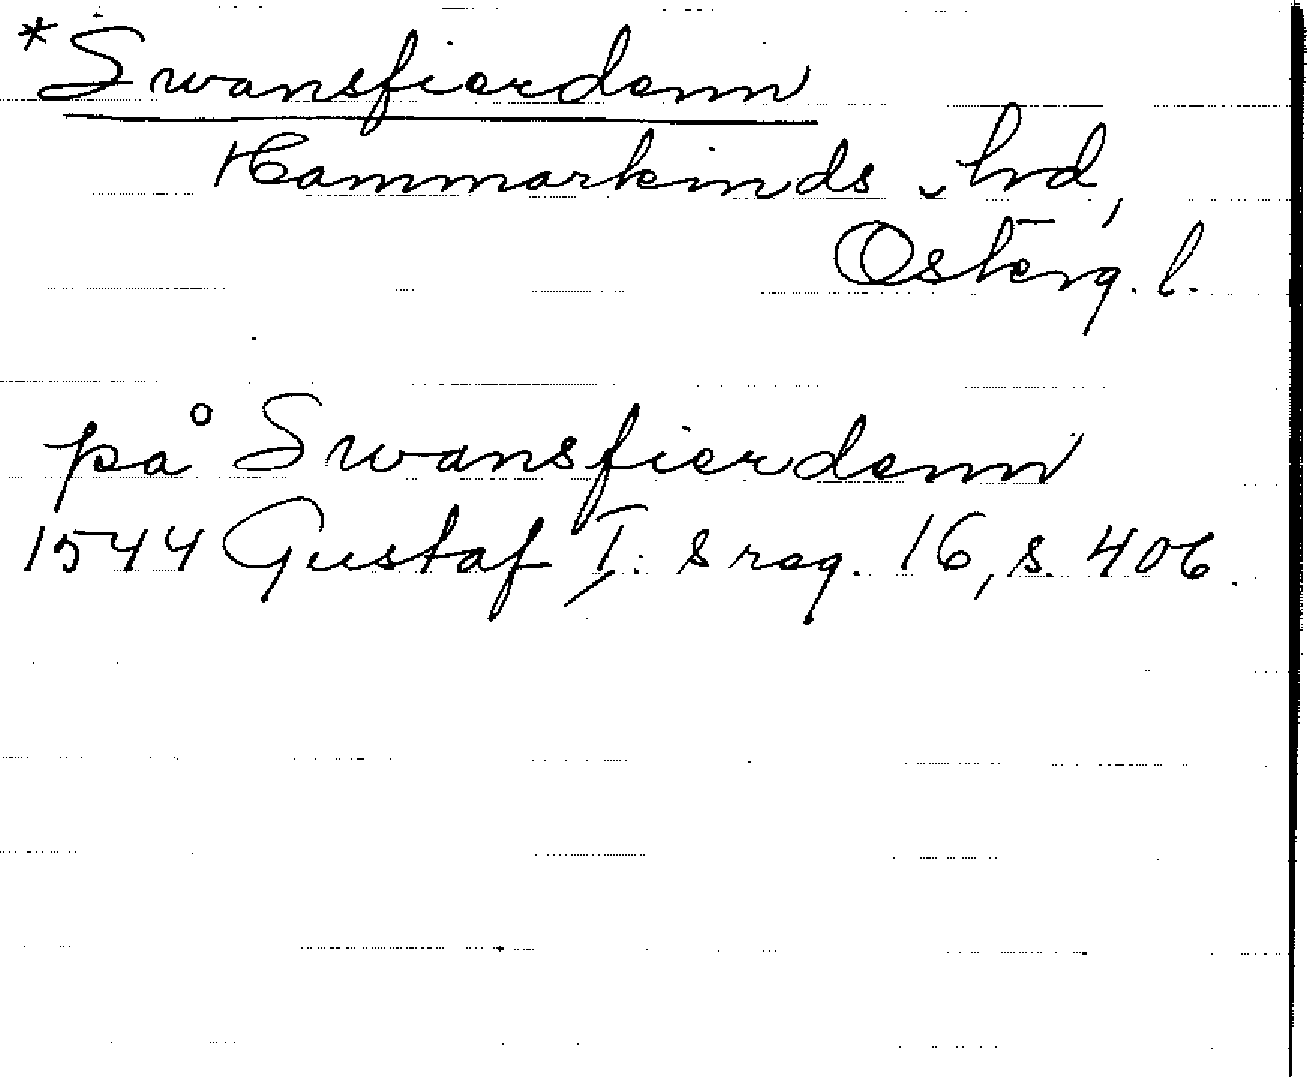 *Swansfierdenn
Hammarkinds hrd,
Österg. l.
på Swansfierdenn
1544 Gustaf I: s reg. 16, s. 406.